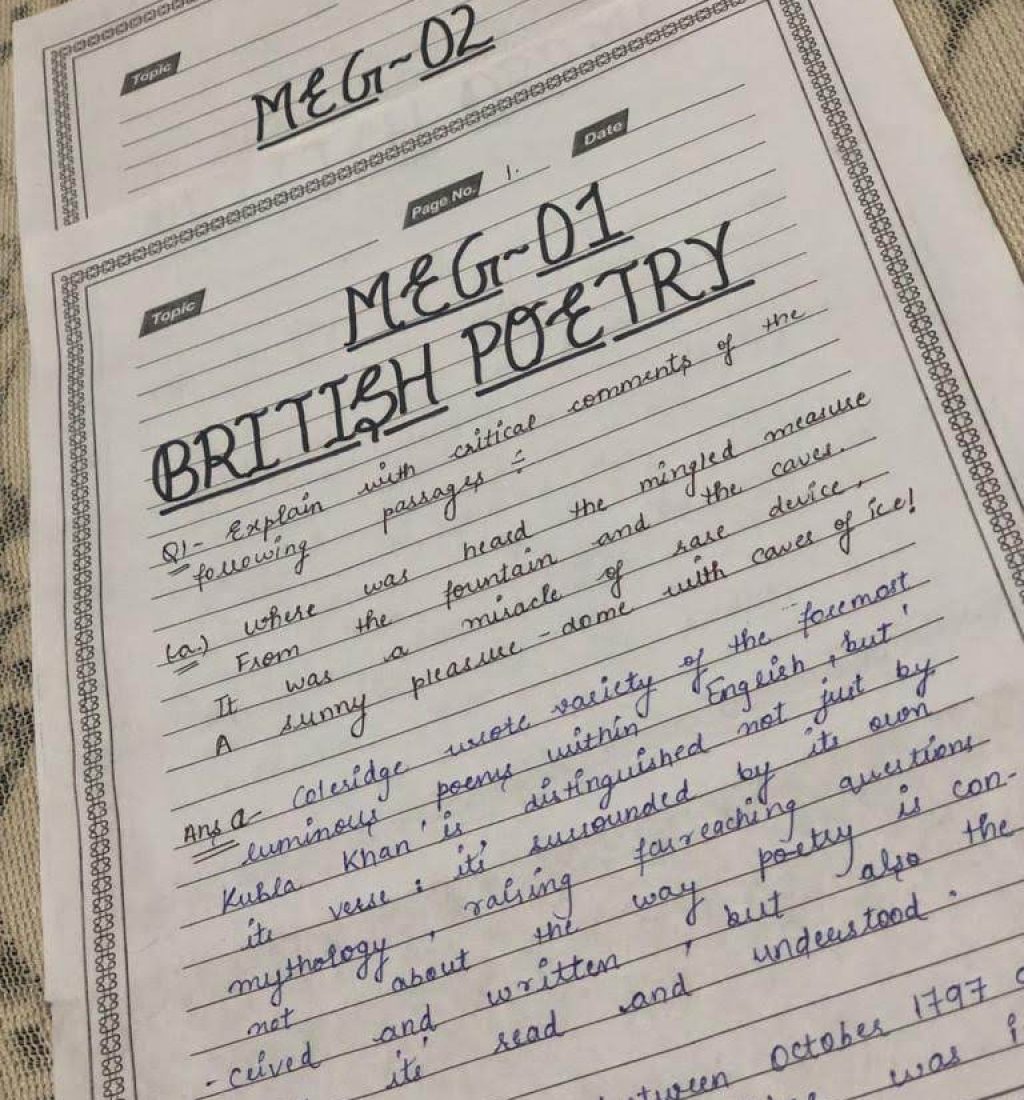 Topic
MEG-02
Page No. 1.
Date
Topic
MEG-01
BRITISH POETRY
Q1- Explain with critical comments of the
following passages :-
(a.) where was heard the mingled measure
From the fountain and the caves.
It was a miracle of rare device,
A sunny pleasure-dome with caves of ice!
Ans a- Coleridge wrote variety of the foremost
luminous poems within English, but '
Kubla Khan' is distinguished not just by
its verse: its surrounded by its own
mythology, raising far reaching questions
not about the way poetry is con-
-ceived and written, but also the
its read and understood.
October 1797
was